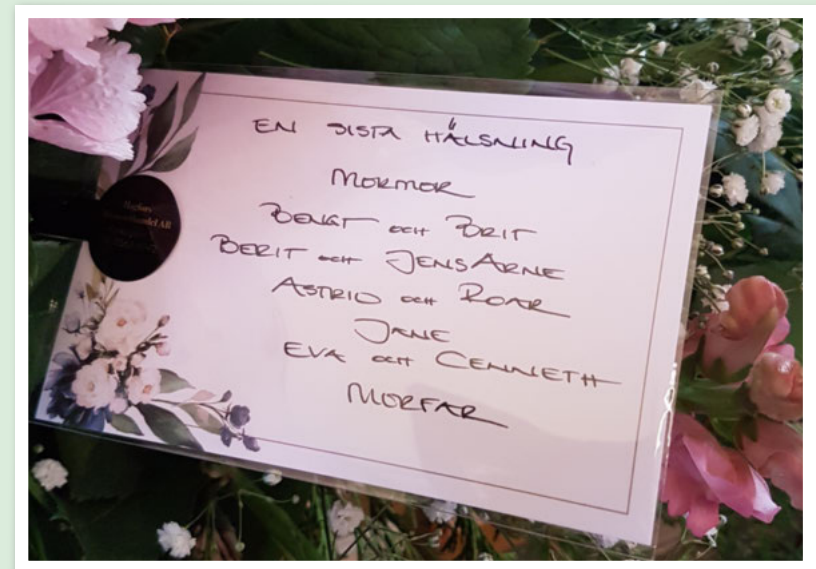 EN SISTA HÄLSNING
MORMOR
BENGT och BRIT
BERIT och JENSARNE
ASTRID och ROAR
JANE
EVA och CENNETH
MORFAR